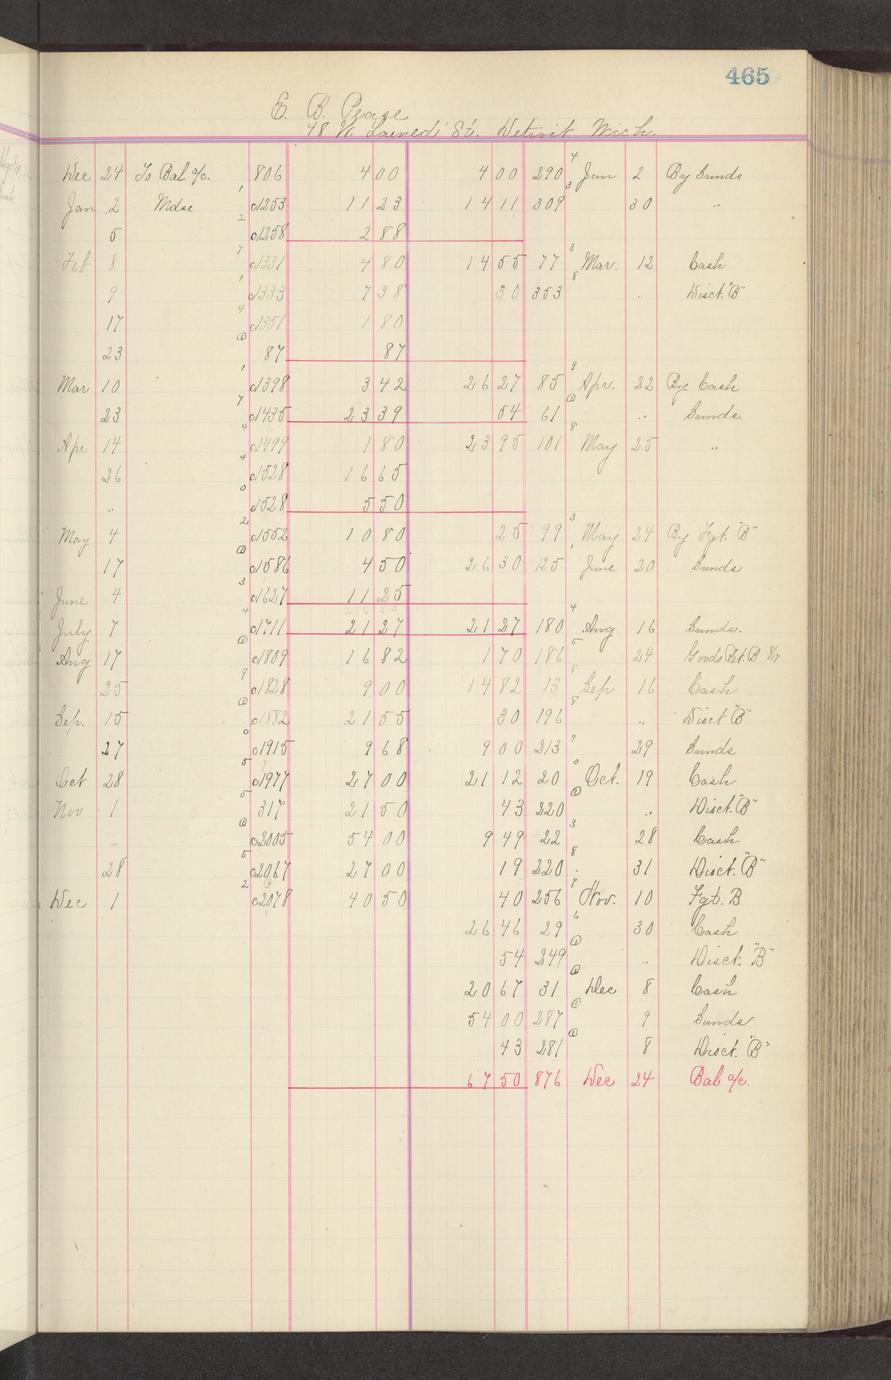 465
E. B. Pease
48 W. Larned St. Detroit Mich.
Dec 24 To Bal a/c. 806 4 00 4 00 290 4 Jan 2 By Sunds
Jan 2 Mdse 1 c1253 11 23 14 11 309 3 30 "
5 2 c1258 2 88
Feb 8 7 c1331 4 80 14 55 77 3 Mar. 12 Cash
9 1 c1333 7 38 30 353 8 " Disct. "B"
17 4 c1351 1 80
23 @ 87 87
Mar 10 1 c1398 3 42 26 27 85 9 Apr. 22 By Cash
23 7 c1435 23 39 54 61 @ " Sunds
Apr 14 4 c1499 1 80 23 95 101 8 May 25 "
26 4 c1528 16 65
" 0 c1528 5 50
May 4 2 c1552 10 80 25 99 3 May 24 By Fgt. "B"
17 @ c1586 4 50 26 30 125 1 June 20 Sunds
June 4 3 c1627 11 25
July 7 4 c1711 21 27 21 27 180 4 Aug 16 Sunds.
Aug 17 @ c1809 16 82 1 70 186 5 24 Goods Ret. B 8/17
25 9 c1828 9 00 14 82 13 8 Sep 16 Cash
Sep. 15 @ c1882 21 55 30 196 8 " Disct "B"
27 0 c1915 9 68 9 00 213 ? 29 Sunds
Oct 28 5 c1977 27 00 21 12 20 0 Oct. 19 Cash
Nov 1 5 317 21 50 43 220 @ " Disct. "B"
" @ c2005 54 00 9 49 22 3 28 Cash
28 5 c2067 27 00 19 220 8 31 Disct. "B"
Dec 1 2 c2078 40 50 40 256 7 Nov. 10 Fgt. B
26 46 29 6 30 Cash
54 249 @ " Disct. "B"
20 67 31 @ Dec 8 Cash
54 00 287 @ 9 Sunds
43 281 @ 8 Disct. "B"
67 50 876 Dec 24 Bal a/c.